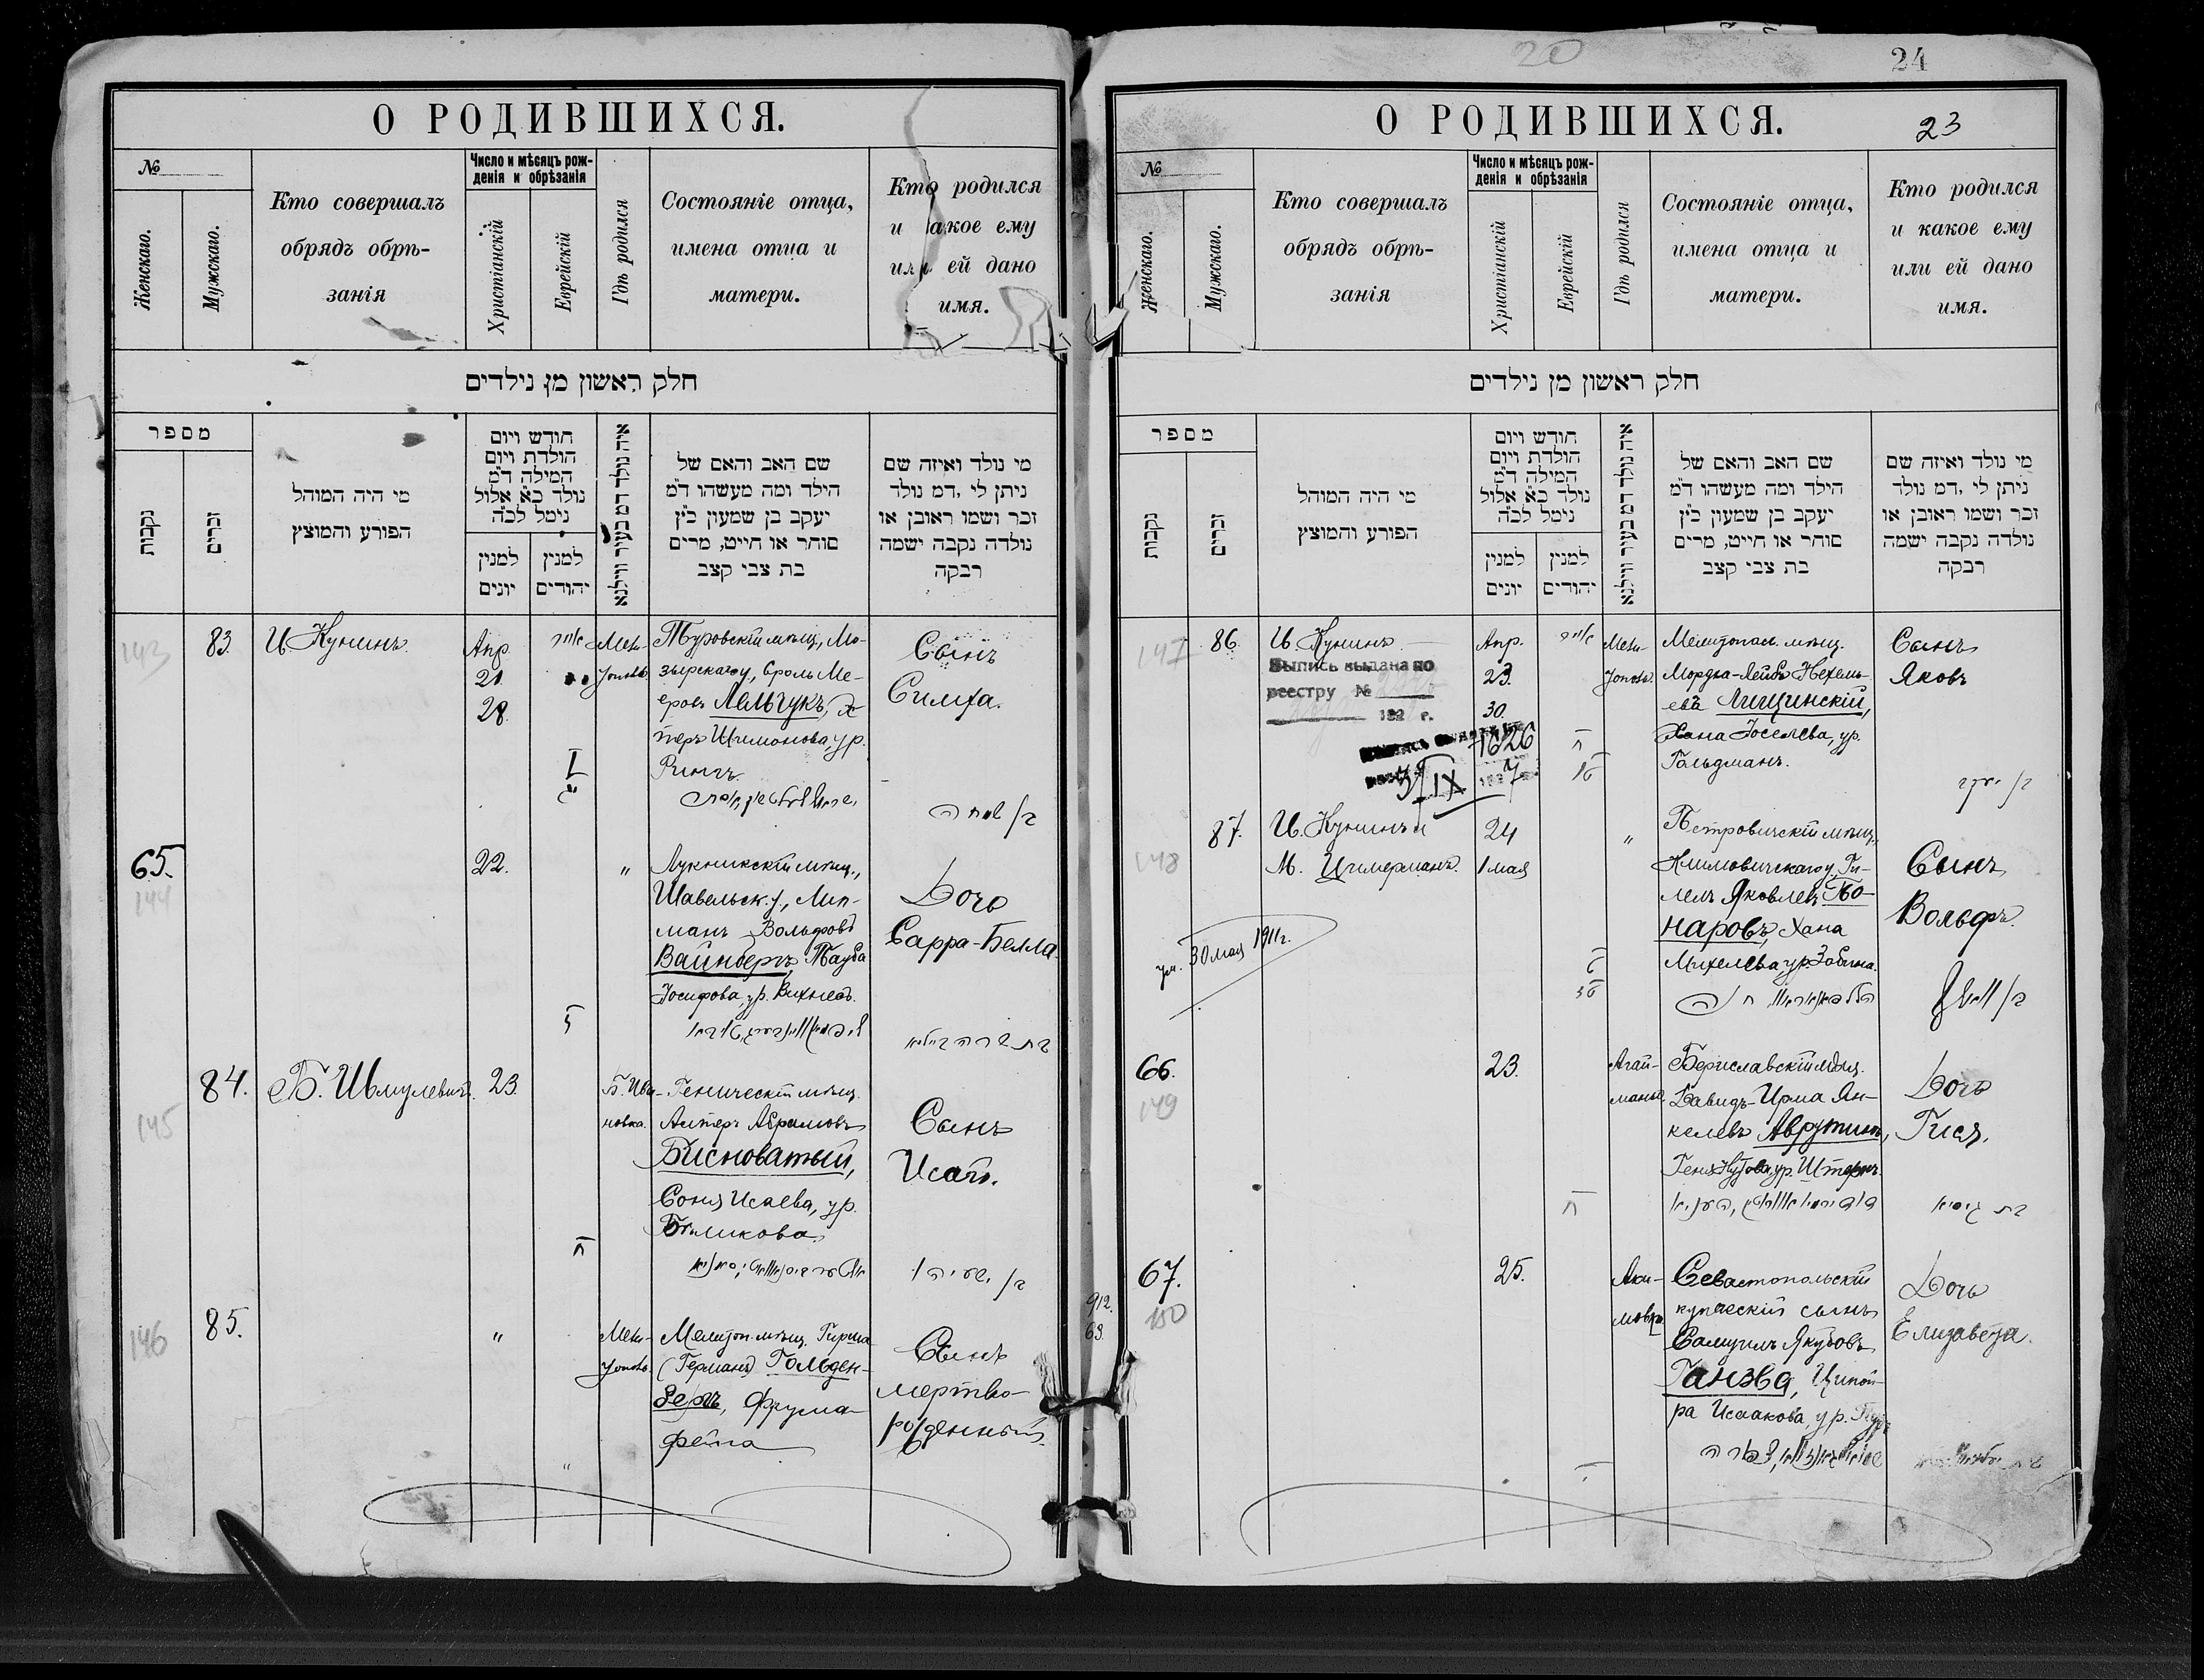 О РОДИВШИХСЯ.
№
Женскаго.
Мужскаго.
Кто совершалъ
обрядъ обрѣ-
занія
Число и мѣсяцъ рож-
денія и обрѣзанія
Христіанскій
Еврейскій
Гдѣ родился
Состояніе отца,
имена отца и
матери.
Кто родился
и акое ему
или ей дано
имя.
חלק ראשון מן נילדים
מספר
נקבות
זכרים
מי היה המוהל
הפורע והמוצץ
חודש ויום
הולדת ויום
המילה ד״מ
נולד כ״א אלול
נימל לכ״ה
למנין
יונים
למנין
יהודים
איה נולד דמ בעיר ווילנא
שם האב והאם של
הילד ומה מעשהו ד״מ
יעקב בן שמעון כ״ץ
סוחר או חייט, מרים
בת צבי קצב
מי נולד ואיזה שם
ניתן לי ,דמ נולד
זכר ושמו ראובן או
נולדה נקבה ישמה
רבקה
143
83.
И. Кунинъ.
Апр.
21.
28.
Мели-
тополь.
Туровскій мѣщ., Мо-
зырскаго у., Сроль Ме-
еровъ Лельчукъ,
Шимонова, ур.
Рингъ.
Сынъ
Симха.
בן שמחה
65.
144
22.
"
Лукникскій мѣщ.,
Шавельск. у., Лип-
манъ Вольфовъ
Вайнбергъ, Тауба
Іосифова, ур.
Дочь
Сарра-Белла.
בת שרה ביילא
84.
145
Б. Шмулевичъ.
23.
Б. Ива-
новка.
Геническій мѣщ.
Алтеръ Абрамовъ
Бисноватый,
Соня Исаева, ур.
Биликова.
ח
Сынъ
Исай.
בן ישעיהו
85.
146
"
Мели-
тополь.
Мелитоп. мѣщ. Гирша
(Германъ) Гольден-
бергъ, Фрума-
Фейга
Сынъ
мертво-
рожденный.
912.
63.
20
24
О РОДИВШИХСЯ.
23
№
Женскаго.
Мужскаго.
Кто совершалъ
обрядъ обрѣ-
занія
Число и мѣсяцъ рож-
денія и обрѣзанія
Христіанскій
Еврейскій
Гдѣ родился
Состояніе отца,
имена отца и
матери.
Кто родился
и какое ему
или ей дано
имя.
חלק ראשון מן נילדים
מספר
נקבות
זכרים
מי היה המוהל
הפורע והמוצץ
חודש ויום
הולדת ויום
המילה ד״מ
נולד כ״א אלול
נימל לכ״ה
למנין
יונים
למנין
יהודים
איה נולד דמ בעיר ווילנא
שם האב והאם של
הילד ומה מעשהו ד״מ
יעקב בן שמעון כ״ץ
סוחר או חייט, מרים
בת צבי קצב
מי נולד ואיזה שם
ניתן לי ,דמ נולד
זכר ושמו ראובן או
נולדה נקבה ישמה
רבקה
147
86.
И. Кунинъ.
Выпись выдана по
реестру №
192 г.
1626
5/IX 1927
Апр.
23.
30.
ח
Мели-
тополь.
Мелитопол. мѣщ.
Мордка-Лейбъ Нехемь-
евъ Лищинскій,
Хана Іоселева, ур.
Гольдманъ.
Сынъ
Яковъ
בן יעקב
87.
148
И. Кунинъ и
М. Цимерманъ.
ум. 30 мая 1911 г.
24
1 мая
"
Петровичскій мѣщ.,
Климовичскаго у., Ги-
лель Яковлевъ Бо-
наровъ, Хана
Михелева, ур.
Сынъ
Вольфъ.
בן וואלף
66.
149
23.
ח
Агай-
маны.
Бериславскій мѣщ.
Давидъ-Ирма Ян-
келевъ Аврутинъ,
Геня ур. Штернъ.
Дочь
Гися.
בת גיסיא
67.
150
25.
Аки-
мовка
Севастопольскій
купеческій сынъ
Самуилъ Якубовъ
Ганзва, Ципой-
ра Исаакова, ур.
Дочь
Елизавета.